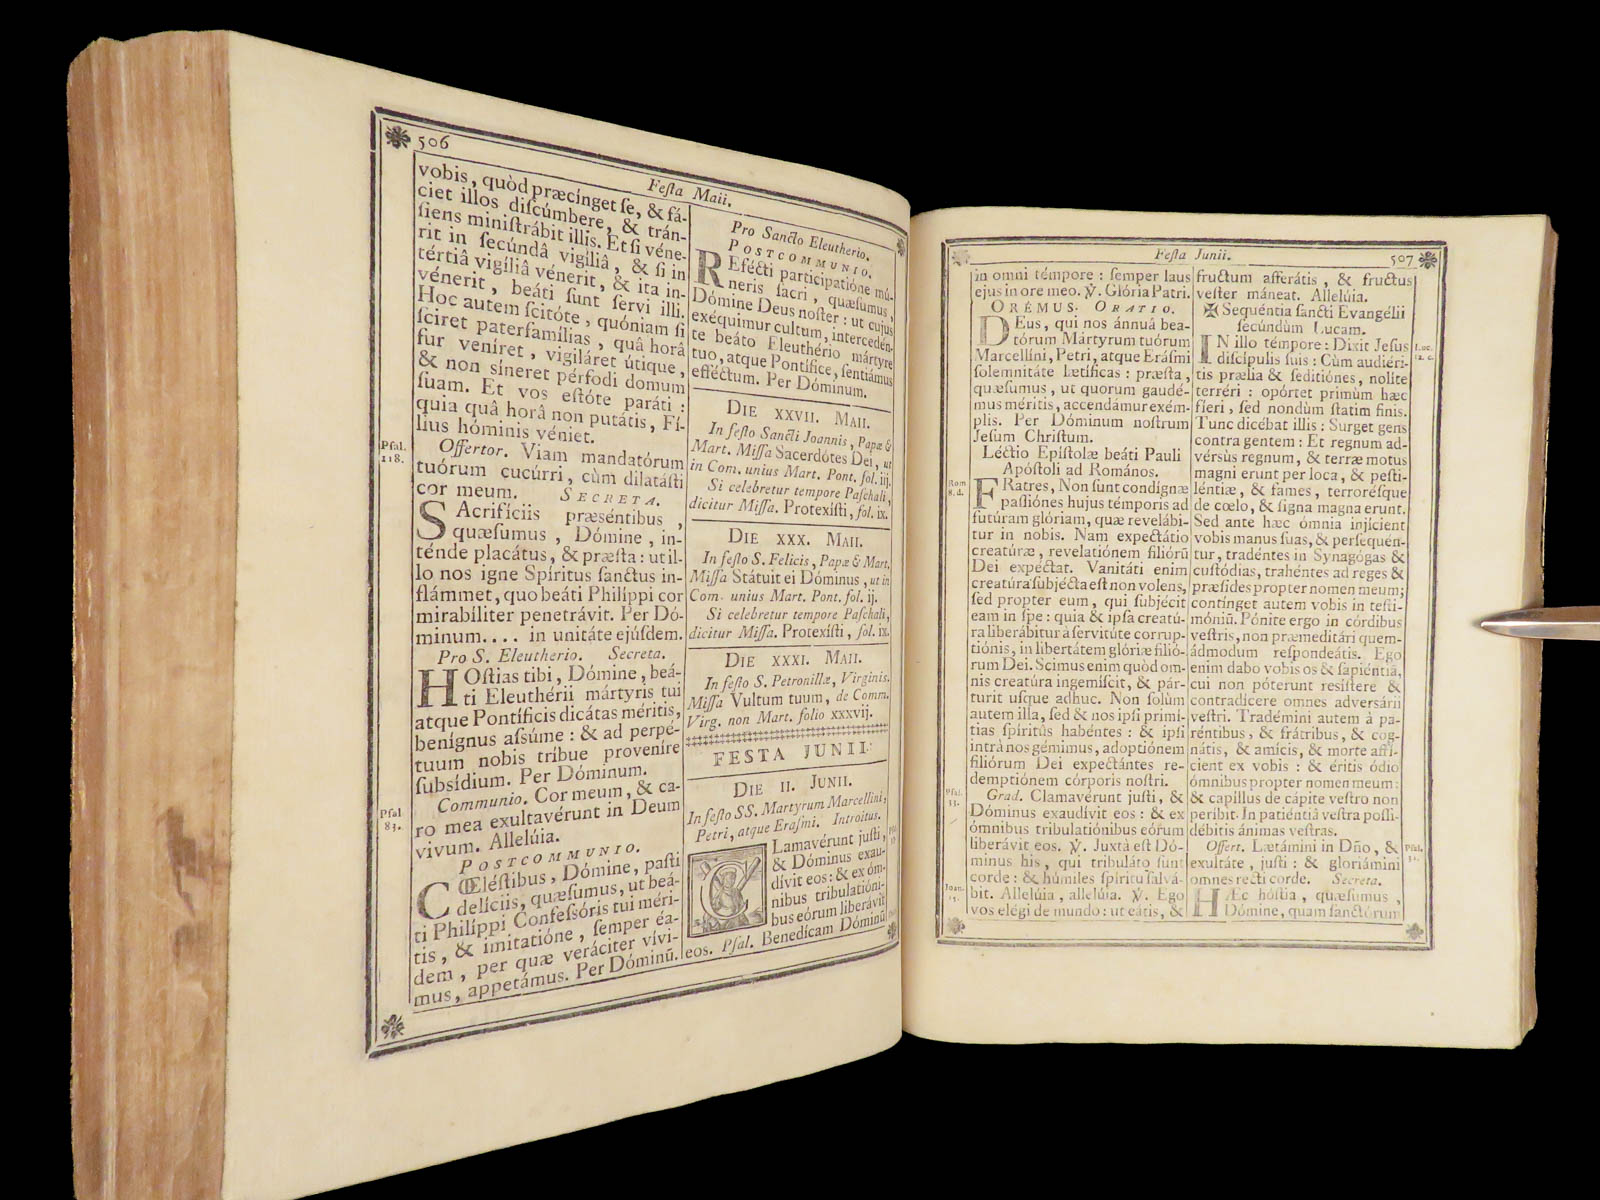 506
Feſta Maii.
vobis, quòd præcínget ſe, & fá-
ciet illos diſcúmbere, & trán-
ſiens miniſtrábit illis. Et ſi véne-
rit in ſecúndâ vigíliâ, & ſi in
tértiâ vigíliâ vénerit, & ita in-
vénerit, beáti ſunt ſervi illi.
Hoc autem ſcitóte, quóniam ſi
ſciret paterfamílias, quâ horâ
fur veníret, vigiláret útique,
& non síneret pérfodi domum
ſuam. Et vos eſtóte paráti:
quia quâ horâ non putátis, Fí-
lius hóminis véniet.
Pſal.
118.
Offertor. Viam mandatórum
tuórum cucúrri, cùm dilatáſti
cor meum. SECRETA.
SAcrifíciis præséntibus,
quæſumus, Dómine, in-
ténde placátus, & præſta: ut il-
lo nos igne Spíritus ſanctus in-
flámmet, quo beáti Philíppi cor
mirabíliter penetrávit. Per Dó-
minum.... in unitáte ejúſdem.
Pro S. Eleutherio. Secreta.
HOſtias tibi, Dómine, beá-
ti Eleuthérii mártyris tui
atque Pontíficis dicátas méritis,
benígnus aſsúme: & ad perpé-
tuum nobis tríbue proveníre
ſubsídium. Per Dóminum.
Pſal
83.
Communio. Cor meum, & ca-
ro mea exultavérunt in Deum
vivum. Allelúia.
POSTCOMMUNIO.
CŒléſtibus, Dómine, paſti
delíciis, quæſumus, ut beá-
ti Philíppi Confeſsóris tui méri-
tis, & imitatióne, ſemper éa-
dem, per quæ veráciter vívi-
mus, appetámus. Per Dóminū.
Pro Sancto Eleutherio.
POSTCOMMUNIO.
REfécti participatióne mú-
neris ſacri, quæſumus,
Dómine Deus noſter: ut cujus
exéquimur cultum, intercedén-
te beáto Eleuthério mártyre
tuo, atque Pontífice, ſentiámus
efféctum. Per Dóminum.
DIE XXVII. MAII.
In feſto Sancti Joannis, Papæ &
Mart. Miſſa Sacerdótes Dei, ut
in Com. unius Mart. Pont. fol. iij.
Si celebretur tempore Paſchali,
dicitur Miſſa. Protexíſti, fol. ix.
DIE XXX. MAII.
In feſto S. Felicis, Papæ & Mart.
Miſſa Státuit ei Dóminus, ut in
Com. unius Mart. Pont. fol. ij.
Si celebretur tempore Paſchali,
dicitur Miſſa. Protexíſti, fol. ix.
DIE XXXI. MAII.
In feſto S. Petronillæ, Virginis.
Miſſa Vultum tuum, de Comm.
Virg. non Mart. folio xxxvij.
FESTA JUNII.
DIE II. JUNII.
In feſto SS. Martyrum Marcellini,
Petri, atque Eraſmi. Introitus.
CLamavérunt juſti,
& Dóminus exau-
dívit eos: & ex óm-
nibus tribulatióni-
bus eórum liberávit
eos. Pſal. Benedícam Dóminū
Feſta Junii.
507
in omni témpore: ſemper laus
ejus in ore meo. ℣. Glória Patri.
ORÉMUS. ORATIO.
DEus, qui nos ánnuâ bea-
tórum Mártyrum tuórum
Marcellíni, Petri, atque Eráſmi
ſolemnitáte lætíficas: præſta,
quæſumus, ut quorum gaudé-
mus méritis, accendámur exém-
plis. Per Dóminum noſtrum
Jeſum Chriſtum.
Léctio Epíſtolæ beáti Pauli
Apóſtoli ad Romános.
Rom
8. d.
FRatres, Non ſunt condígnæ
paſſiónes hujus témporis ad
futúram glóriam, quæ revelábi-
tur in nobis. Nam expectátio
creatúræ, revelatiónem filiórū
Dei expéctat. Vanitáti enim
creatúra ſubjécta eſt non volens,
ſed propter eum, qui ſubjécit
eam in ſpe: quia & ipſa creatú-
ra liberábitur à ſervitúte corrup-
tiónis, in libertátem glóriæ filió-
rum Dei. Scimus enim quòd om-
nis creatúra ingemíſcit, & pár-
turit uſque adhuc. Non ſolùm
autem illa, ſed & nos ipſi primí-
tias ſpíritûs habéntes: & ipſi
intrà nos gémimus, adoptiónem
filiórum Dei expectántes re-
demptiónem córporis noſtri.
Pſal.
33.
Grad. Clamavérunt juſti, &
Dóminus exaudívit eos: & ex
ómnibus tribulatiónibus eórum
liberávit eos. ℣. Juxtà eſt Dó-
minus his, qui tribuláto ſunt
corde: & húmiles ſpíritu ſalvá-
Joan.
15.
bit. Allelúia, allelúia. ℣. Ego
vos elégi de mundo: ut eátis, &
fructum afferátis, & fructus
veſter máneat. Allelúia.
✠ Sequéntia ſancti Evangélii
ſecúndùm Lucam.
Luc.
IN illo témpore: Dixit Jeſus
diſcípulis ſuis: Cùm audiéri-
tis prælia & ſeditiónes, nolíte
terréri: opórtet primùm hæc
fíeri, ſed nondùm ſtatim finis.
Tunc dicébat illis: Surget gens
contra gentem: Et regnum ad-
vérsùs regnum, & terræ motus
magni erunt per loca, & peſti-
léntiæ, & fames, terrorésque
de cœlo, & ſigna magna erunt.
Sed ante hæc ómnia injícient
vobis manus ſuas, & perſequén-
tur, tradéntes in Synagógas &
cuſtódias, trahéntes ad reges &
præſides propter nomen meum;
contínget autem vobis in teſti-
móniū. Pónite ergo in córdibus
veſtris, non præmeditári quem-
ádmodum reſpondeátis. Ego
enim dabo vobis os & ſapiéntiā,
cui non póterunt resíſtere &
contradícere omnes adverſárii
veſtri. Tradémini autem à pa-
réntibus, & frátribus, & cog-
nátis, & amícis, & morte affí-
cient ex vobis: & éritis ódio
ómnibus propter nomen meum:
& capíllus de cápite veſtro non
períbit. In patiéntiâ veſtra poſſi-
débitis ánimas veſtras.
Pſal.
31.
Offert. Lætámini in Dño, &
exultáte, juſti: & gloriámini
omnes recti corde. Secreta.
HÆc hóſtia, quæſumus,
Dómine, quam ſanctórum